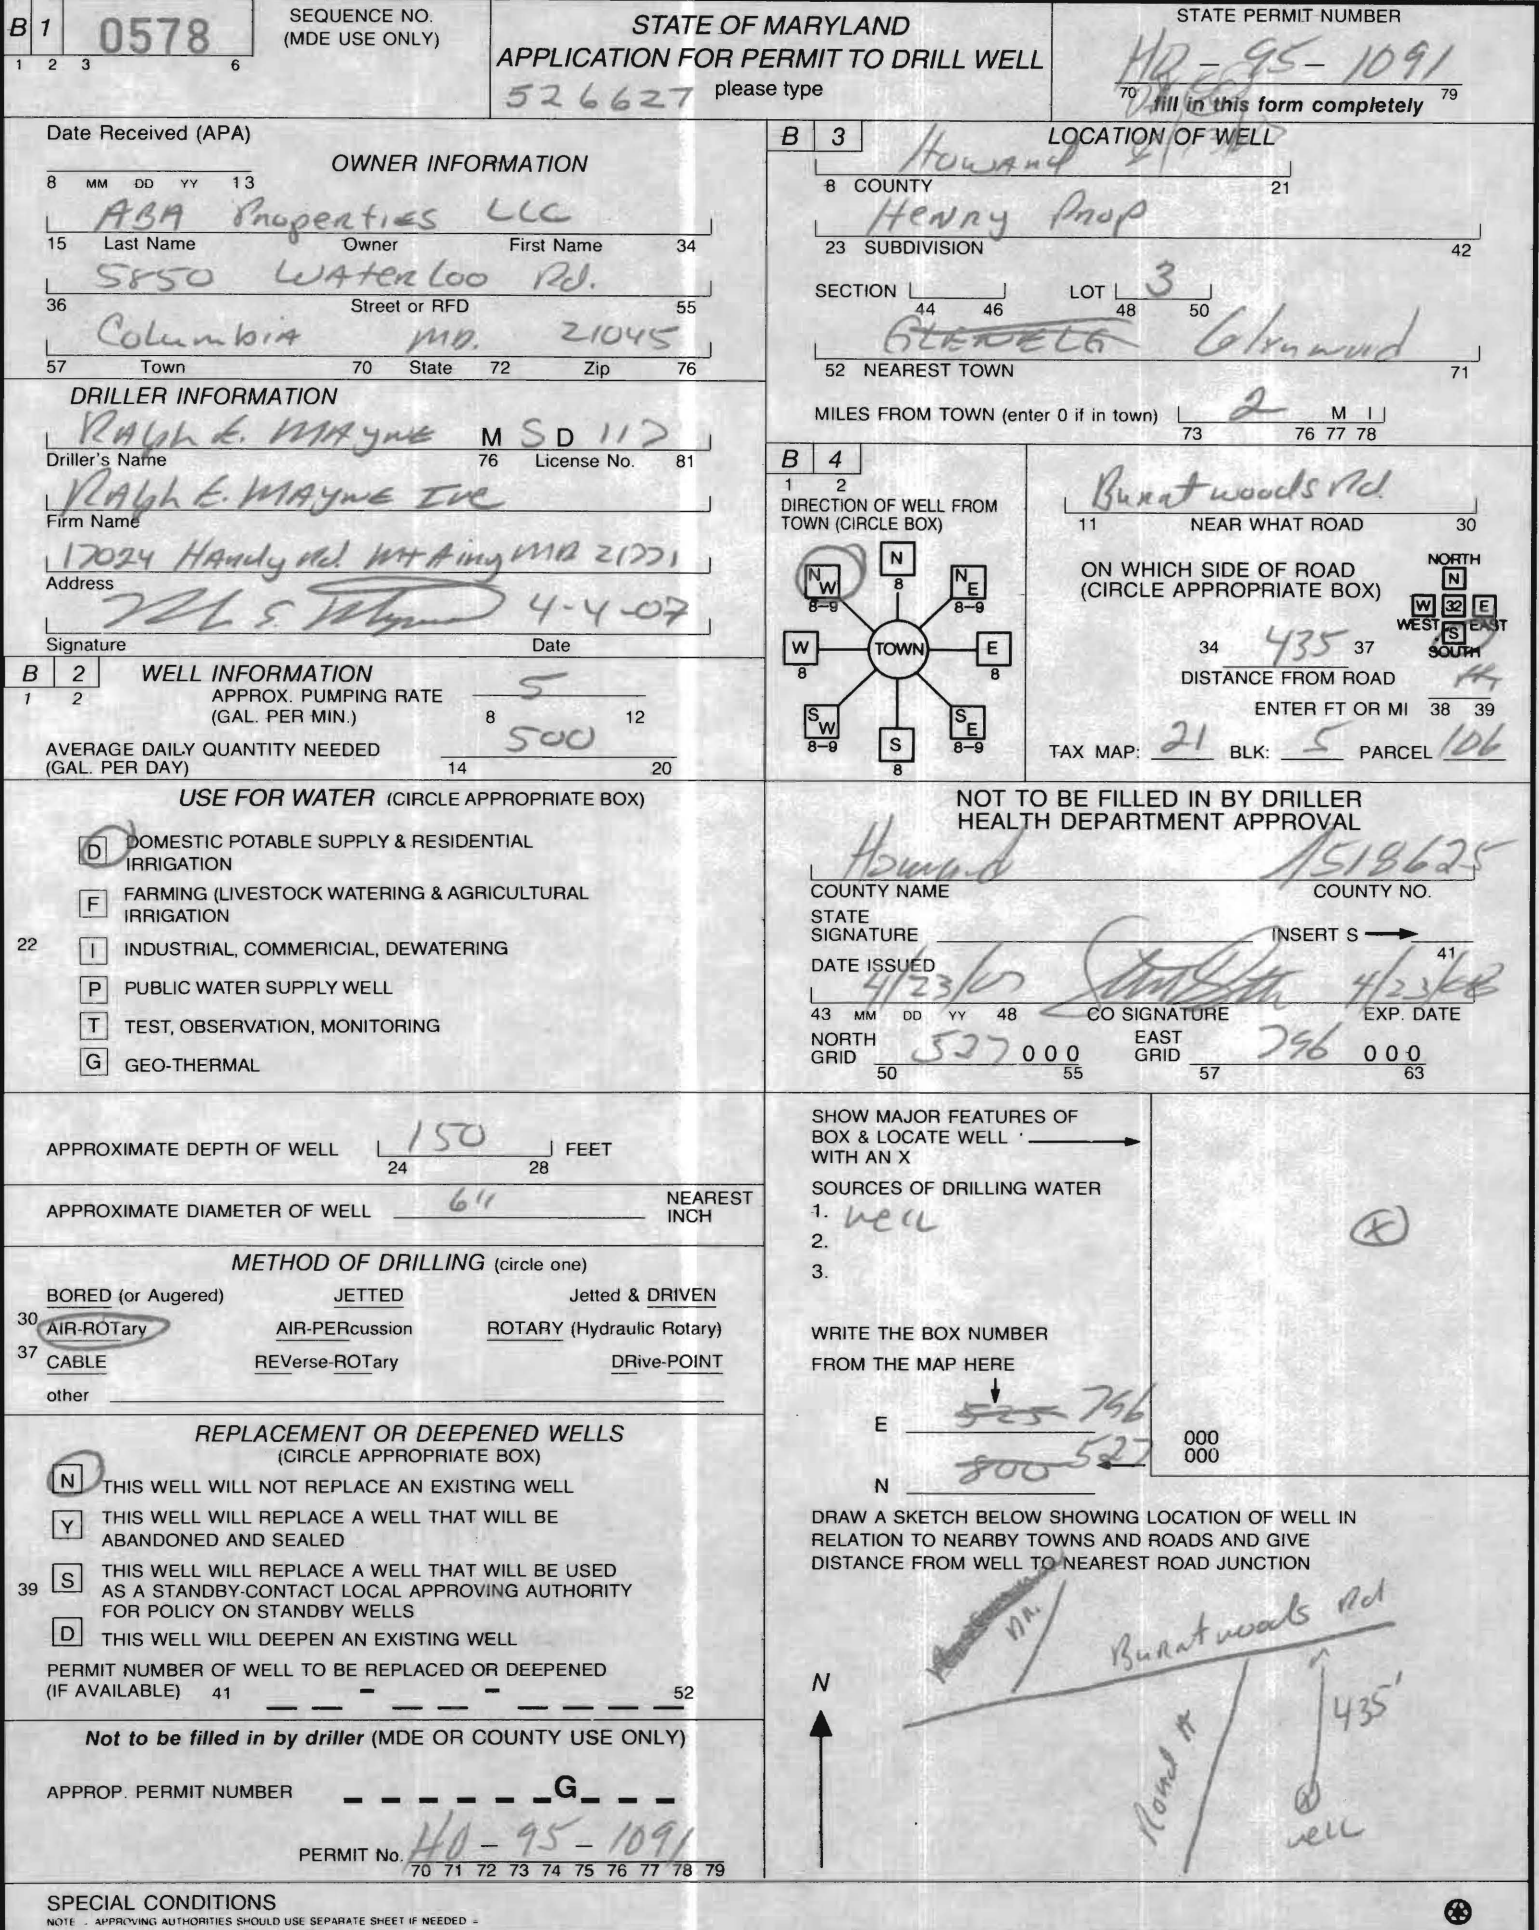 B 1
1 2 3 6
0578
SEQUENCE NO.
(MDE USE ONLY)
STATE OF MARYLAND
APPLICATION FOR PERMIT TO DRILL WELL
526627 please type
STATE PERMIT NUMBER
HO-95-1091
70 79
fill in this form completely
Date Received (APA)
8 MM DD YY 13
OWNER INFORMATION
ABA Properties LLC
15 Last Name Owner First Name 34
5850 Waterloo Rd.
36 Street or RFD 55
Columbia MD. 21045
57 Town 70 State 72 Zip 76
DRILLER INFORMATION
Ralph E. Mayne M S D 117
Driller's Name 76 License No. 81
Ralph E. Mayne Inc
Firm Name
17024 Handy Rd. Mt Airy MD 21771
Address
4-4-07
Signature Date
B 2 WELL INFORMATION
1 2
APPROX. PUMPING RATE 5
(GAL. PER MIN.) 8 12
AVERAGE DAILY QUANTITY NEEDED 500
(GAL. PER DAY) 14 20
USE FOR WATER (CIRCLE APPROPRIATE BOX)
D DOMESTIC POTABLE SUPPLY & RESIDENTIAL
IRRIGATION
F FARMING (LIVESTOCK WATERING & AGRICULTURAL
IRRIGATION
22 I INDUSTRIAL, COMMERICIAL, DEWATERING
P PUBLIC WATER SUPPLY WELL
T TEST, OBSERVATION, MONITORING
G GEO-THERMAL
APPROXIMATE DEPTH OF WELL 150 FEET
24 28
APPROXIMATE DIAMETER OF WELL 6" NEAREST
INCH
METHOD OF DRILLING (circle one)
BORED (or Augered) JETTED Jetted & DRIVEN
30 AIR-ROTary AIR-PERcussion ROTARY (Hydraulic Rotary)
37 CABLE REVerse-ROTary DRive-POINT
other
REPLACEMENT OR DEEPENED WELLS
(CIRCLE APPROPRIATE BOX)
N THIS WELL WILL NOT REPLACE AN EXISTING WELL
Y THIS WELL WILL REPLACE A WELL THAT WILL BE
ABANDONED AND SEALED
39 S THIS WELL WILL REPLACE A WELL THAT WILL BE USED
AS A STANDBY-CONTACT LOCAL APPROVING AUTHORITY
FOR POLICY ON STANDBY WELLS
D THIS WELL WILL DEEPEN AN EXISTING WELL
PERMIT NUMBER OF WELL TO BE REPLACED OR DEEPENED
(IF AVAILABLE) 41 - - 52
Not to be filled in by driller (MDE OR COUNTY USE ONLY)
APPROP. PERMIT NUMBER G
PERMIT No. HO-95-1091
70 71 72 73 74 75 76 77 78 79
SPECIAL CONDITIONS
NOTE - APPROVING AUTHORITIES SHOULD USE SEPARATE SHEET IF NEEDED -
B 3 LOCATION OF WELL
Howard
8 COUNTY 21
Henry Prop
23 SUBDIVISION 42
SECTION LOT 3
44 46 48 50
GLENELG Glenwood
52 NEAREST TOWN 71
MILES FROM TOWN (enter 0 if in town) 2 M I
73 76 77 78
B 4
1 2
DIRECTION OF WELL FROM
TOWN (CIRCLE BOX)
NW 8-9 N 8 NE 8-9
W 8 TOWN E 8
SW 8-9 S 8 SE 8-9
Burntwoods Rd.
11 NEAR WHAT ROAD 30
ON WHICH SIDE OF ROAD
(CIRCLE APPROPRIATE BOX)
NORTH
N
W 32 E
WEST S EAST
SOUTH
34 435 37
DISTANCE FROM ROAD
ENTER FT OR MI ft
38 39
TAX MAP: 21 BLK: 5 PARCEL 106
NOT TO BE FILLED IN BY DRILLER
HEALTH DEPARTMENT APPROVAL
Howard A518625
COUNTY NAME COUNTY NO.
STATE
SIGNATURE INSERT S
41
DATE ISSUED
4/23/07 4/23/08
43 MM DD YY 48 CO SIGNATURE EXP. DATE
NORTH
GRID 527 000
50 55
EAST
GRID 796 000
57 63
SHOW MAJOR FEATURES OF
BOX & LOCATE WELL
WITH AN X
SOURCES OF DRILLING WATER
1. well
2.
3.
X
WRITE THE BOX NUMBER
FROM THE MAP HERE
E 525 796 000
N 800 527 000
DRAW A SKETCH BELOW SHOWING LOCATION OF WELL IN
RELATION TO NEARBY TOWNS AND ROADS AND GIVE
DISTANCE FROM WELL TO NEAREST ROAD JUNCTION
Dr.
Burntwoods Rd
N
435'
X
well